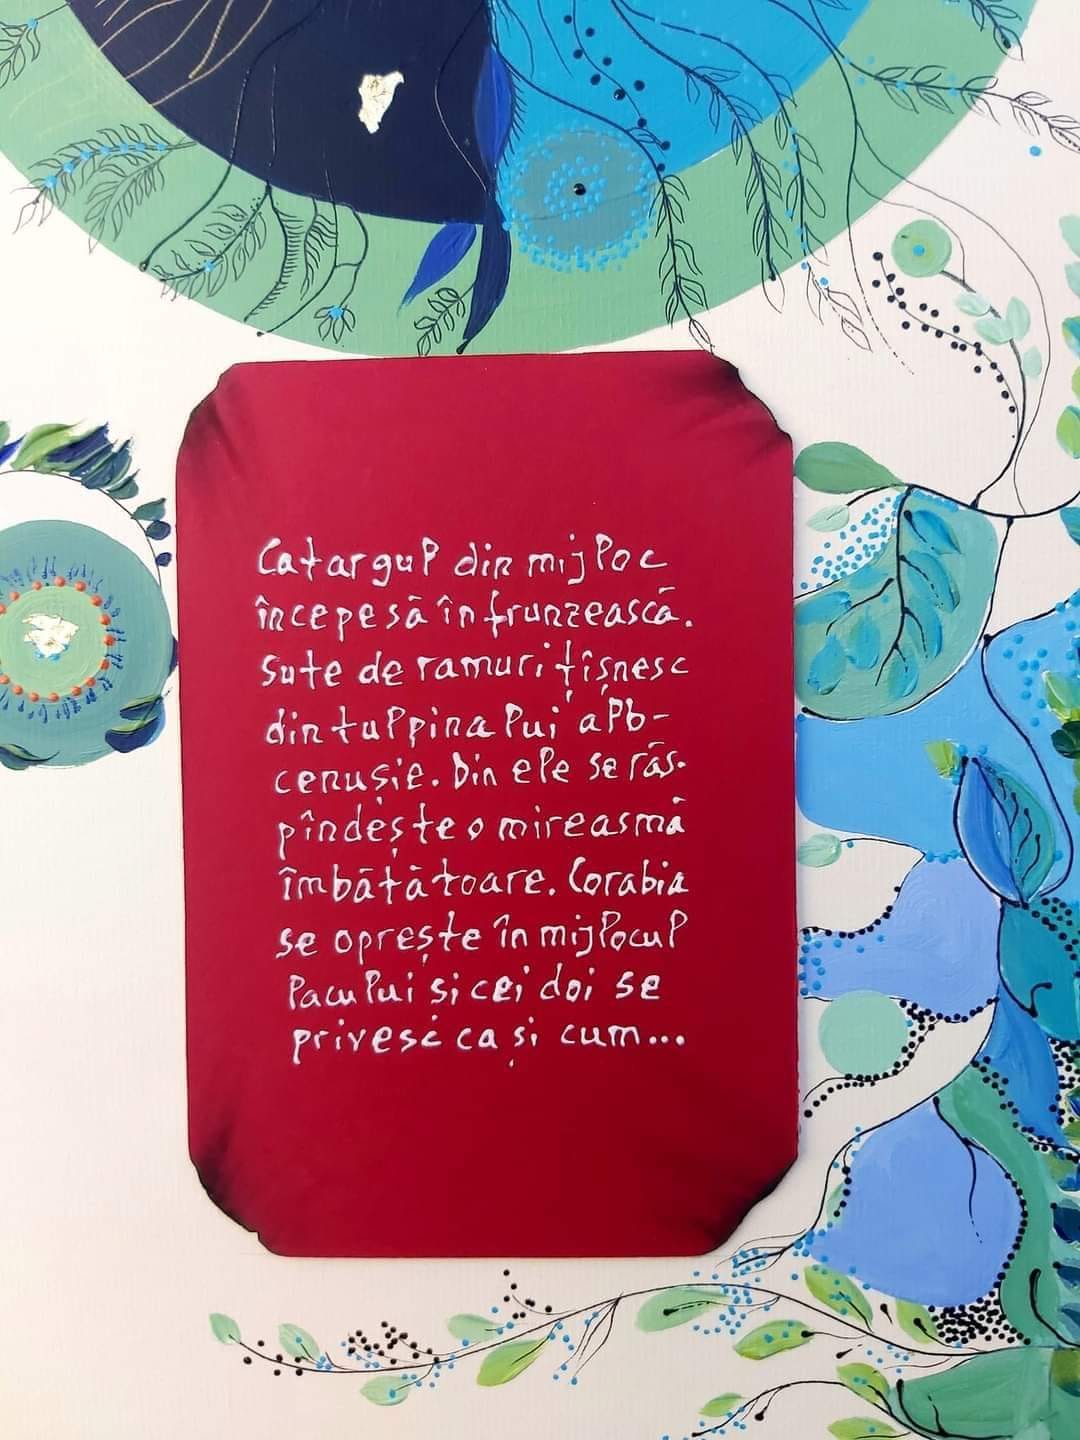 Catargul din mijloc
începe să înfrunzească.
Sute de ramuri țîșnesc
din tulpina lui alb-
cenușie. Din ele se răs-
pîndește o mireasmă
îmbătătoare. Corabia
se oprește în mijlocul
lacului și cei doi se
privesc ca și cum...